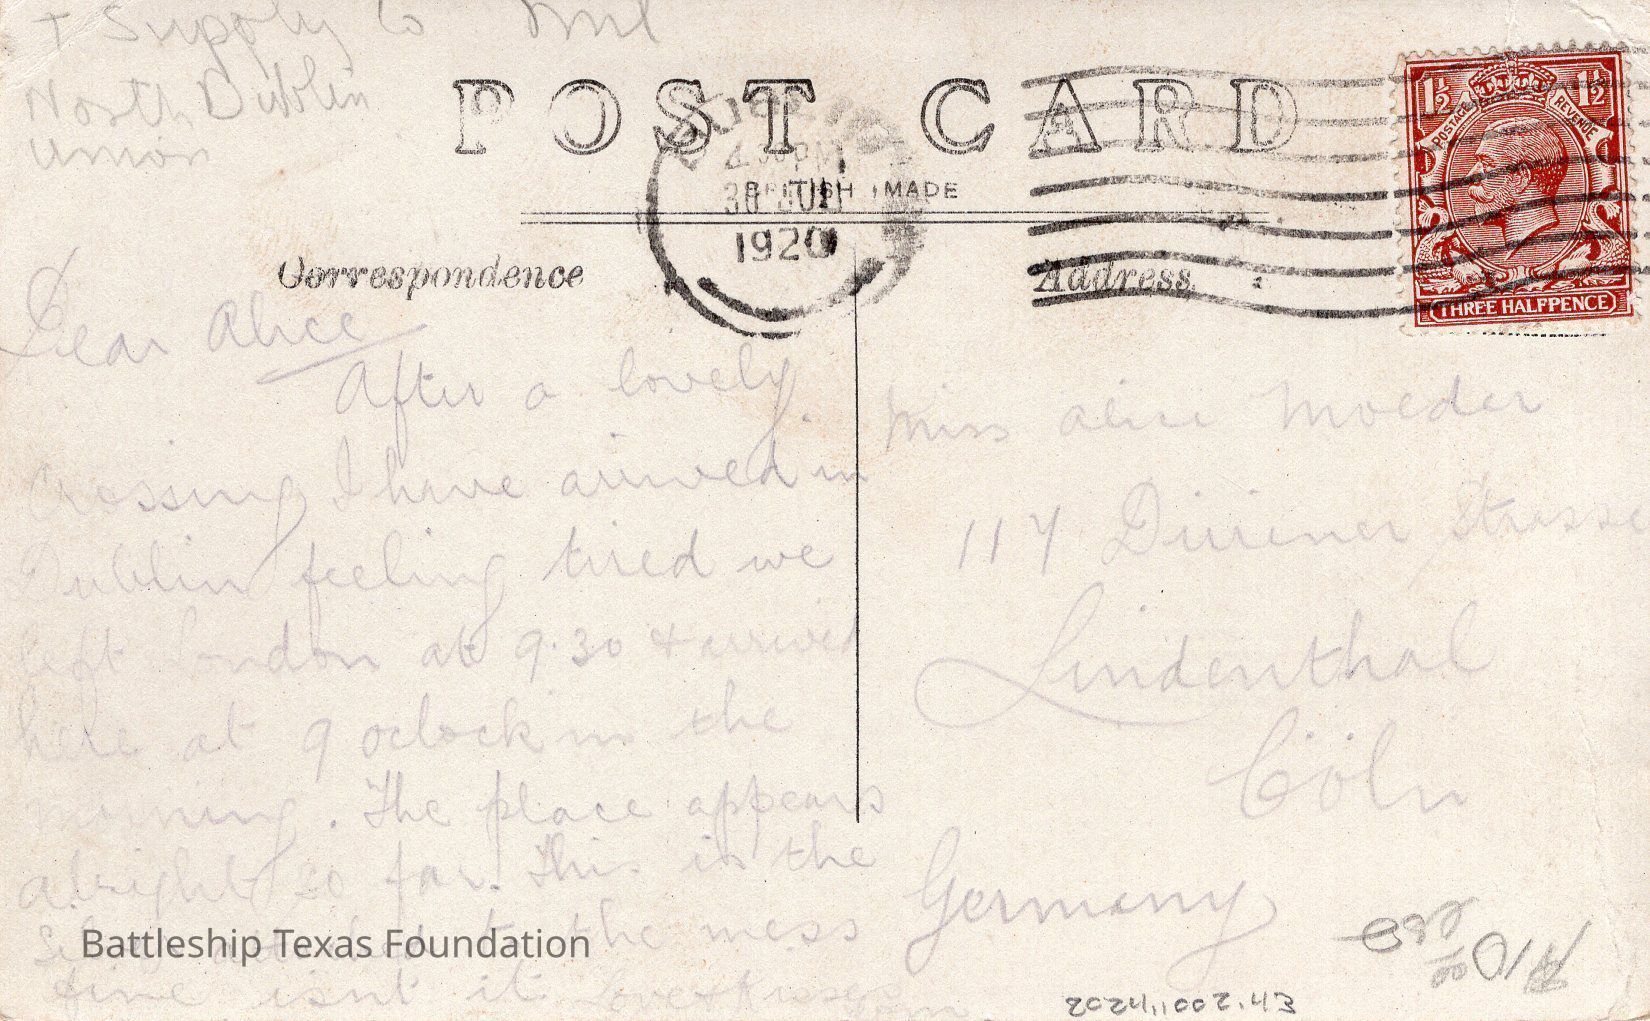 T Supply Co
North Dublin
Union
POST CARD
30 PM
30 JUL
1920
BRITISH MADE
Correspondence
Address
1½ 1½
POSTAGE REVENUE
THREE HALFPENCE
Dear Alice
After a lovely
crossing I have arrived in
Dublin feeling tired we
left London at 9.30 & arrived
here at 9 oclock in the
morning. The place appears
alright so far. This is the
to the mess
fine isnt it Love & Kisses
Miss Alice Moeder
117 Dürener Strasse
Lindenthal
Cöln
Germany
Battleship Texas Foundation
2024.002.43